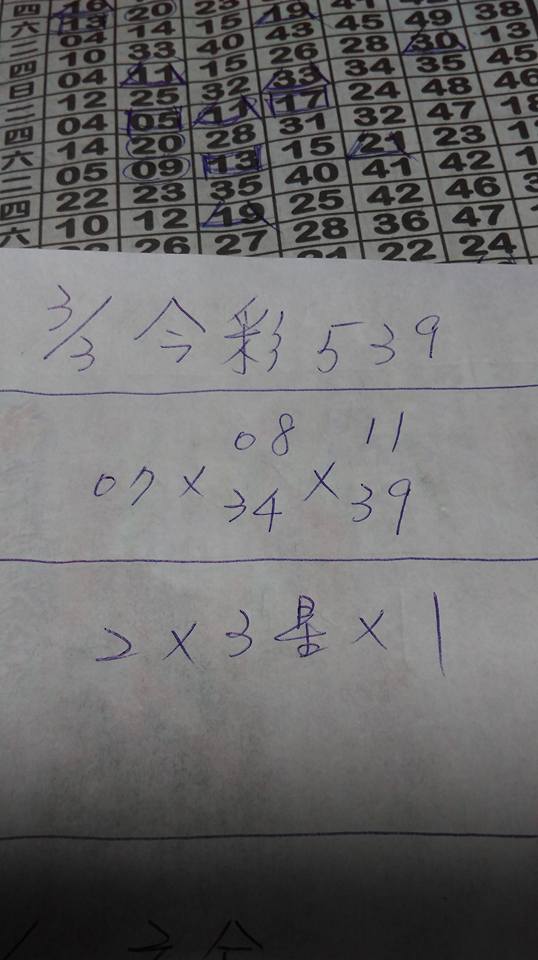 四 16
六 13 20 23
二 04 14 15 19
四 10 33 40 43 45 49 38
日 04 11 15 26 28 30 13
二 12 25 32 33 34 35 45
四 04 05 11 17 24 48 46
六 14 20 28 31 32 47 18
二 05 09 13 15 21 23
四 22 23 35 40 41 42
六 10 12 19 25 42 46
26 27 28 36 47
22 24
3/3 今彩539
08 11
07×34×39
2×3星×1